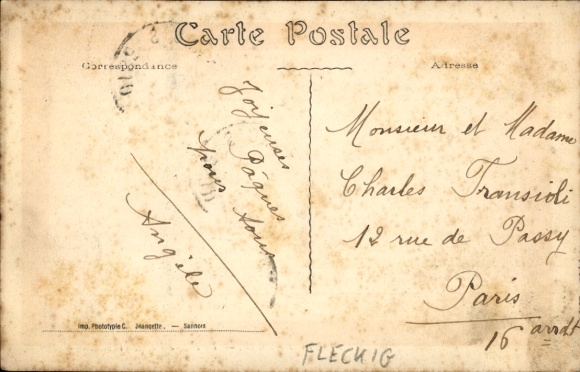 Carte Postale
Correspondance
Adresse
Joyeuses
Pâques
pour tous
Angèle
Monsieur et Madame
Charles Transioli
12 rue de Passy
Paris
16 arrdt
Imp. Phototypie C. Jeangette, — Sannois
FLECKIG